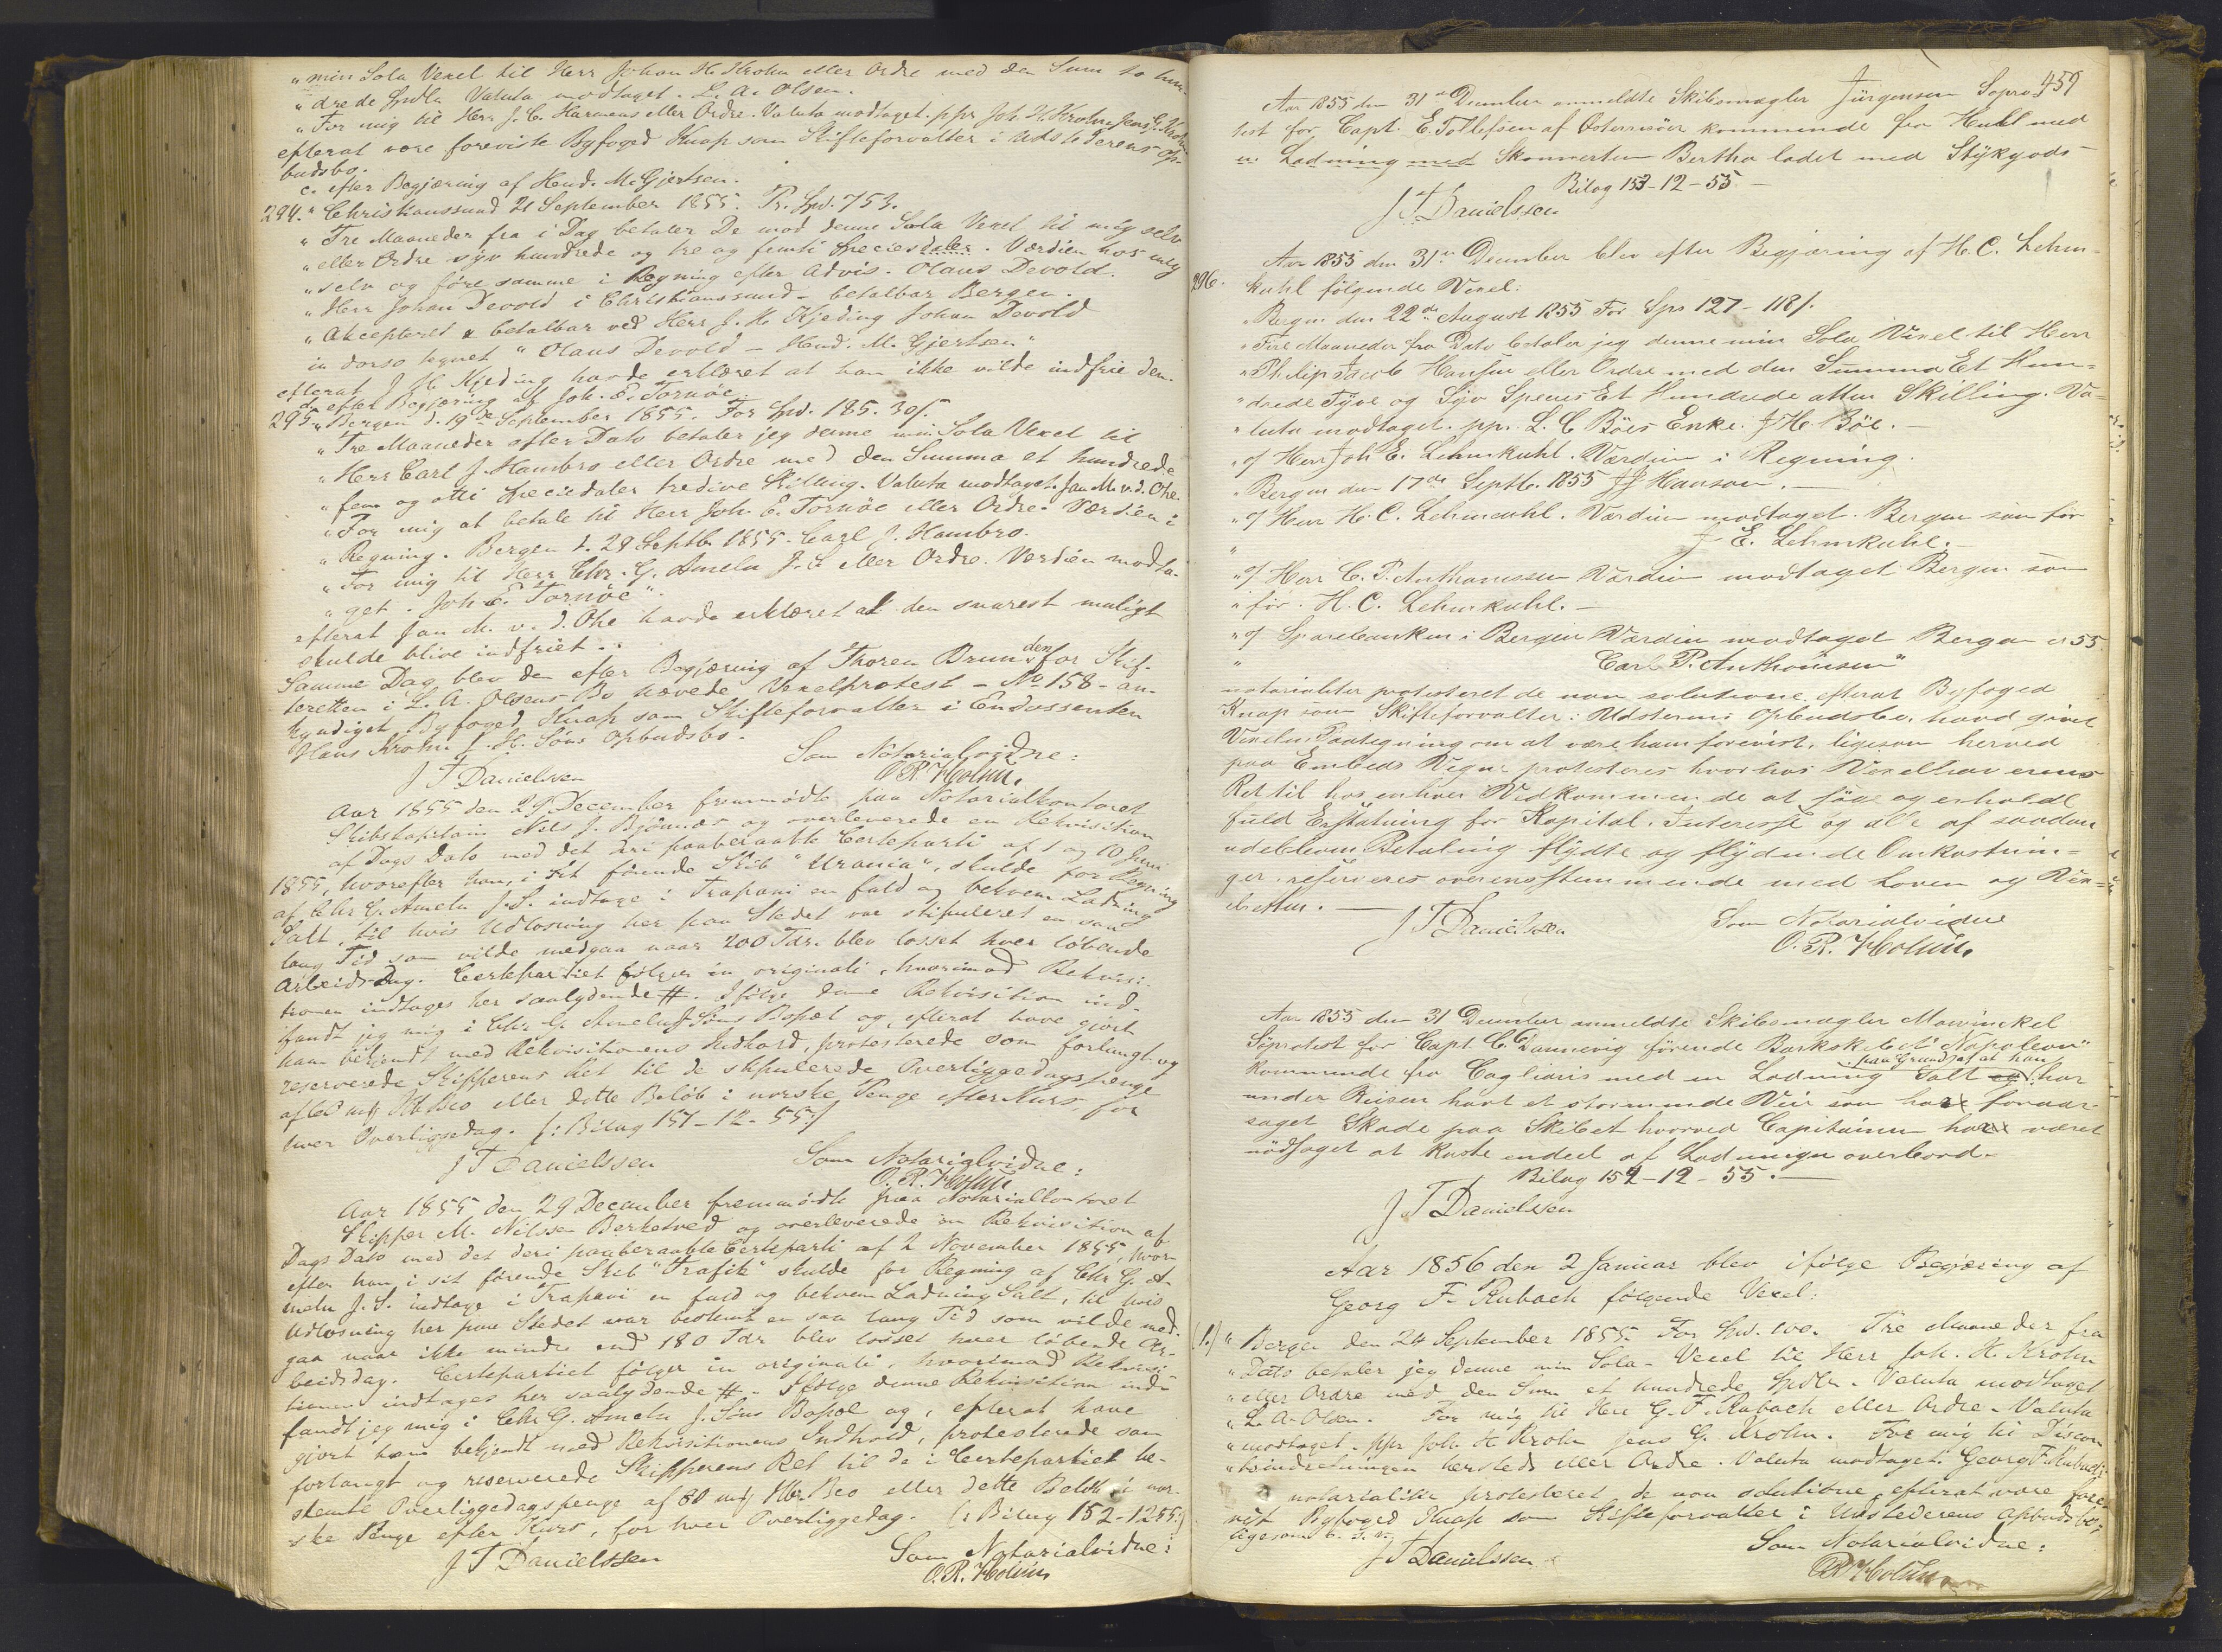 „min Sola Vexel til Herr Johan H. Krohn eller Ordre med den Sum to hun-
„drede Spdlr Valuta modtaget. L. A. Olsen.
„For mig til Herr J. C. Harmens eller Ordre. Valuta modtaget. ppr Joh. H. Krohn Jens G. Krohn
efterat være foreviste Byfoged Knap som Skifteforvalter i Udstederens Op-
budsbo.
c. efter Begjæring af Hend. M. Gjertsen.
294. „Christianssund 21 September 1855. Pr. Spd. 753.
„Tre Maaneder fra i Dag betaler De mod denne Sola Vexel til mig selv
„eller Ordre syv hundrede og tre og femti Speciesdaler. Værdien hos mig
„selv og före samme i Regning efter Advis. Olaus Devold.
„Herr Johan Devold i Christianssund - betalbar Bergen.
„Akcepteret & betalbar ved Herr J. H. Kjeding Johan Devold
in dorso tegnet „Olaus Devold - Hend. M. Gjertsen“
efterat J. H. Kjeding havde erklæret at han ikke vilde indfrie den.
d. efter Begjæring af Joh. E. Tornöe.
295. „Bergen d. 19de September 1855. For Spd. 185. 30 s.
„Tre Maaneder efter Dato betaler jeg denne min Sola Vexel til
„Herr Carl J. Hambro eller Ordre med den Summa et hundrede
„fem og otti Speciedaler tredive Skilling. Valuta modtaget. Jan M. v. d. Ohe.
„For mig at betale til Herr Joh. E. Tornöe eller Ordre. Værdien i
„Regning. Bergen d. 29 Septb. 1855. Carl J. Hambro.
„For mig til Herr Chr. G. Ameln J. S. eller Ordre. Verdien modta-
„get. Joh. E. Tornöe“.
efterat Jan M. v. d. Ohe havde erklæret at den snarest muligt
skulde blive indfriet.
Samme Dag blev den efter Begjæring af Thoren Bruns den for Skif-
teretten i L. A. Olsens Bo hævede Vexelprotest - No 158 - an-
kyndiget Byfoged Knap som Skifteforvalter i Endossenten
Hans Krohn J. H. Söns Opbudsbo.
Som Notarialvidne:
J T Danielssen O. R. Holm.
Aar 1855 den 29 December fremmødte paa Notarialkontoret
Skibskapitain Nels J. Björnnes og overleverede en Rekvisition
af Dags Dato med det deri paaberaabte Certeparti af 1 og 10 Juni
1855, hvorefter han, i sit förende Skib „Urania“, skulde for Regning
af Chr G. Ameln J. S. indtage i Trapani en fuld og bekvem Ladning
Salt, til hvis Udlosning her paa Stedet var stipuleret en saa
lang Tid som vilde medgaa naar 200 Tdr. blev losset hver löbende
Arbeidsdag. Certepartiet fölger in originali, hvorimod Rekvisi-
tionen indtages her saalydende #. Ifölge denne Rekvisition ind-
fandt jeg mig i Chr G. Ameln J. Söns Bopæl og, efterat have gjort
ham bekjendt med Rekvisitionens Indhold, protesterede som forlangt og
reserverede Skipperens Ret til de stipulerede Overliggedagspenge
af 60 mf Hb Bco eller dette Belöb i norske Penge efter Kurs, for
hver Overliggedag. /: Bilag 151-12-55:/
Som Notarialvidne:
J T Danielssen O. R. Holm
Aar 1855 den 29 December fremmödte paa Notarialkontoret
Skipper M. Nilssen Berketved og overleverede en Rekvisition af
Dags Dato med det deri paaberaabte Certeparti af 2 November 1855, hvor-
efter han, i sit förende Skib „Trafik“ skulde for Regning af Chr G. A-
meln J. S. indtage i Trapani en fuld og bekvem Ladning Salt, til hvis
Udlosning her paa Stedet var bestemt en saa lang Tid som vilde med-
gaa naar ikke mindre end 180 Tdr blev losset hver löbende Ar-
beidsdag. Certepartiet fölger in originali, hvorimod Rekvisi-
tionen indtages her saalydende #. Ifölge denne Rekvisition ind-
fandt jeg mig i Chr G. Ameln J. Söns Bopæl og, efterat have
gjort ham bekjendt med Rekvisitionens Indhold, protesterede som
forlangt og reserverede Skipperens Ret til de i Certepartiet be-
stemte Overliggedagspenge af 80 mf Hb. Bco eller dette Belöb i nor-
ske Penge efter Kurs, for hver Overliggedag. /: Bilag 152-12 55:/
Som Notarialvidne:
J T Danielssen O. R. Holm
459
Aar 1855 den 31te December anmeldte Skibsmægler Jürgensen Sopro-
test for Capt. E. Tollefsen af Osterrisöer kommende fra Hull med
en Ladning med Skonnerten Bertha ladet med Stykgods -
Bilag 153-12-55.-
J T Danielssen
Aar 1855 den 31te December blev efter Begjæring af H. C. Lehm-
296. kuhl fölgende Vexel:
„Bergen den 22de August 1855 For Sps 127-118 s.
„Fire Maaneder fra Dato betaler jeg denne min Sola Vexel til Herr
„Philip Jacob Hansen eller Ordre med den Summa Et Hun-
„drede Tyve og Syv Species Et Hundrede atten Skilling. Va-
„luta modtaget. pp. L. C Böes Enke. J H Böe. -
„of Herr Joh E. Lehmkuhl. Værdien i Regning.
„Bergen den 17de Septb. 1855 P J Hanson. -
„of Herr H. C. Lehmkuhl. Værdien modtaget. Bergen som för
„ J. E. Lehmkuhl. -
„of Herr C. P. Anthonissen Værdien modtaget Bergen som
„för. H. C. Lehmkuhl. -
„of Sparebanken i Bergen Værdien modtaget Bergen 55.
„ Carl P. Anthonisen“
notarialiter protesteret de non solutione, efterat Byfoged
Knap som Skifteforvalter i Udsterens Opbudsbo, havd givet
Vexelen Paategning om at være ham forevist, ligesom herved
paa Embeds Vegne protesteres hvorhos Vexelhaverens
Ret til hos enhver Vedkommende at söge og erholde
fuld Erstatning for Kapital, Interesse og alle af saadan
udebleven Betaling flydte og flydende Omkostnin-
ger, reserveres overensstemmende med Loven og Vex-
elretten.
Som Notarialvidne
J T Danielssen O. R. Holm.
Aar 1855 den 31 December anmeldte Skibsmægler Mowinckel
Söprotest for Capt C. Dannevig förende Barkskibet „Napoleon“
kommende fra Cagliaris med en Ladning Salt og paa Grund af at han har
under Reisen havt et stormende Veir som have foraar-
saget Skade paa Skibet hvorved Capitainen have været
nödsaget at kaste endeel af Ladningen overbord.
Bilag 154-12-55.
J T Danielssen
Aar 1856 den 2 Januar blev ifölge Begjæring af
Georg F. Rubach fölgende Vexel:
(1.) „Bergen den 24 September 1855. For Spd. 100. Tre Maaneder fra
„Dato betaler jeg denne min Sola-Vexel til Herr Joh. H. Krohn
„eller Ordre med den Sum et hundrede Spdlr. Valuta modtaget
„L. A. Olsen. For mig til Herr G. F. Rubach eller Ordre. Valuta
„modtaget. ppr Joh. H Krohn Jens G. Krohn. For mig til Discon-
„toindretningen hersteds eller Ordre. Valuta modtaget. Georg F. Rubach“
notarialiter protesteret de non solutione, efterat være fore-
vist Byfoged Knap som Skifteforvalter i Udstederens Opbudsbo,
ligesom
Som Notarialvidne:
J T Danielssen O R Holm